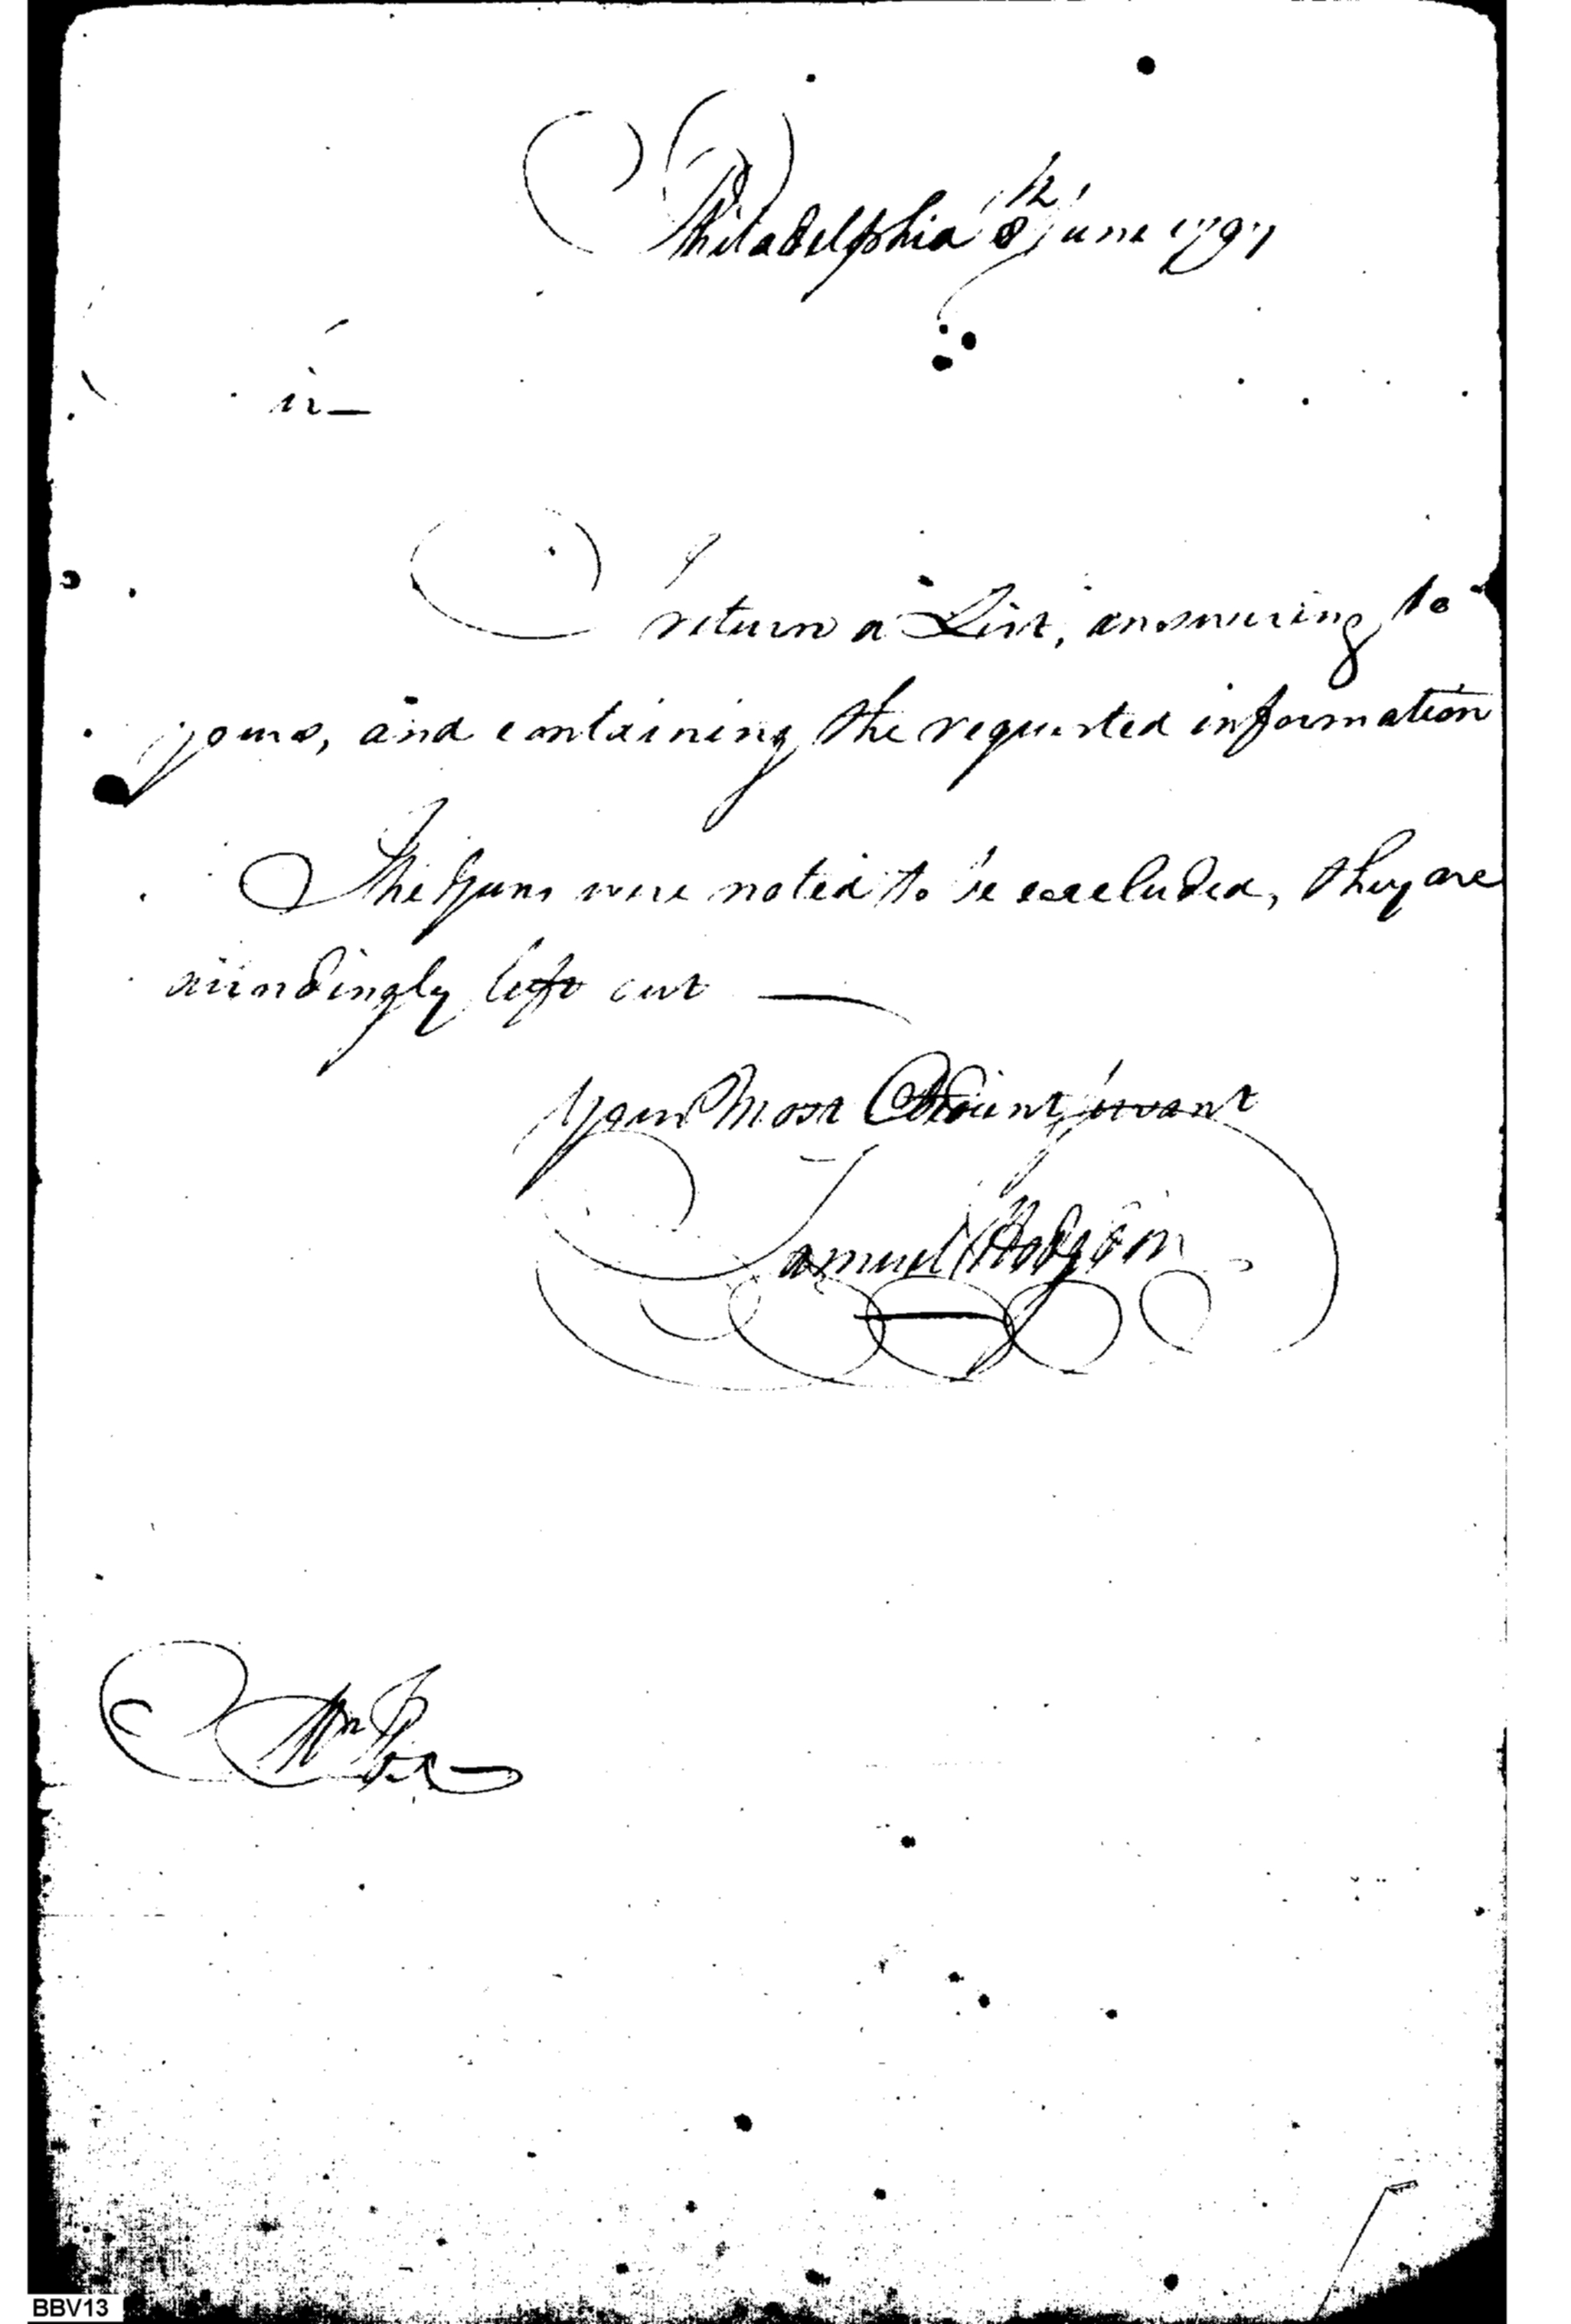 Philadelphia 8th June 1797
Sir —
I return a List, answering to
yours, and containing the requested information
The Guns were noted to be excluded, they are
accordingly left out —
Your Most Obedient Servant
Samuel Hodgdon
BBV13